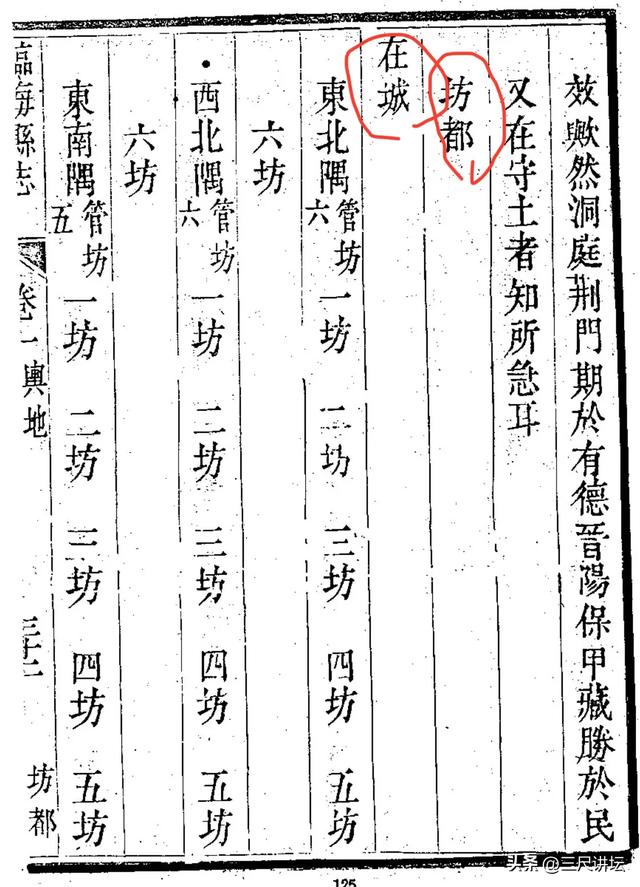 效歟然洞庭荆門期於有德晉陽保甲藏勝於民
又在守土者知所急耳
坊都
在城
東北隅 管坊六 一坊 二坊 三坊 四坊 五坊
六坊
西北隅 管坊六 一坊 二坊 三坊 四坊 五坊
六坊
東南隅 管坊五 一坊 二坊 三坊 四坊 五坊
臨海縣志 卷一輿地 三十二 坊都
125
头条 @三尺讲坛